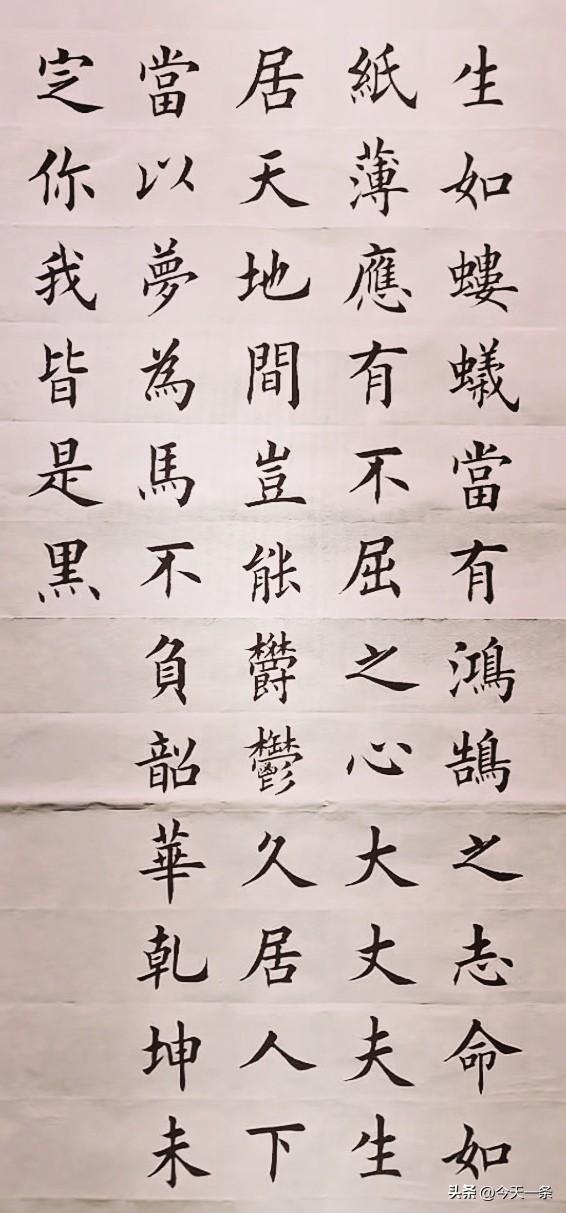 生如螻蟻當有鴻鵠之志命如
紙薄應有不屈之心大丈夫生
居天地間豈能欝鬱久居人下
當以夢為馬不負韶華乾坤未
定你我皆是黑
头条 @今天一条